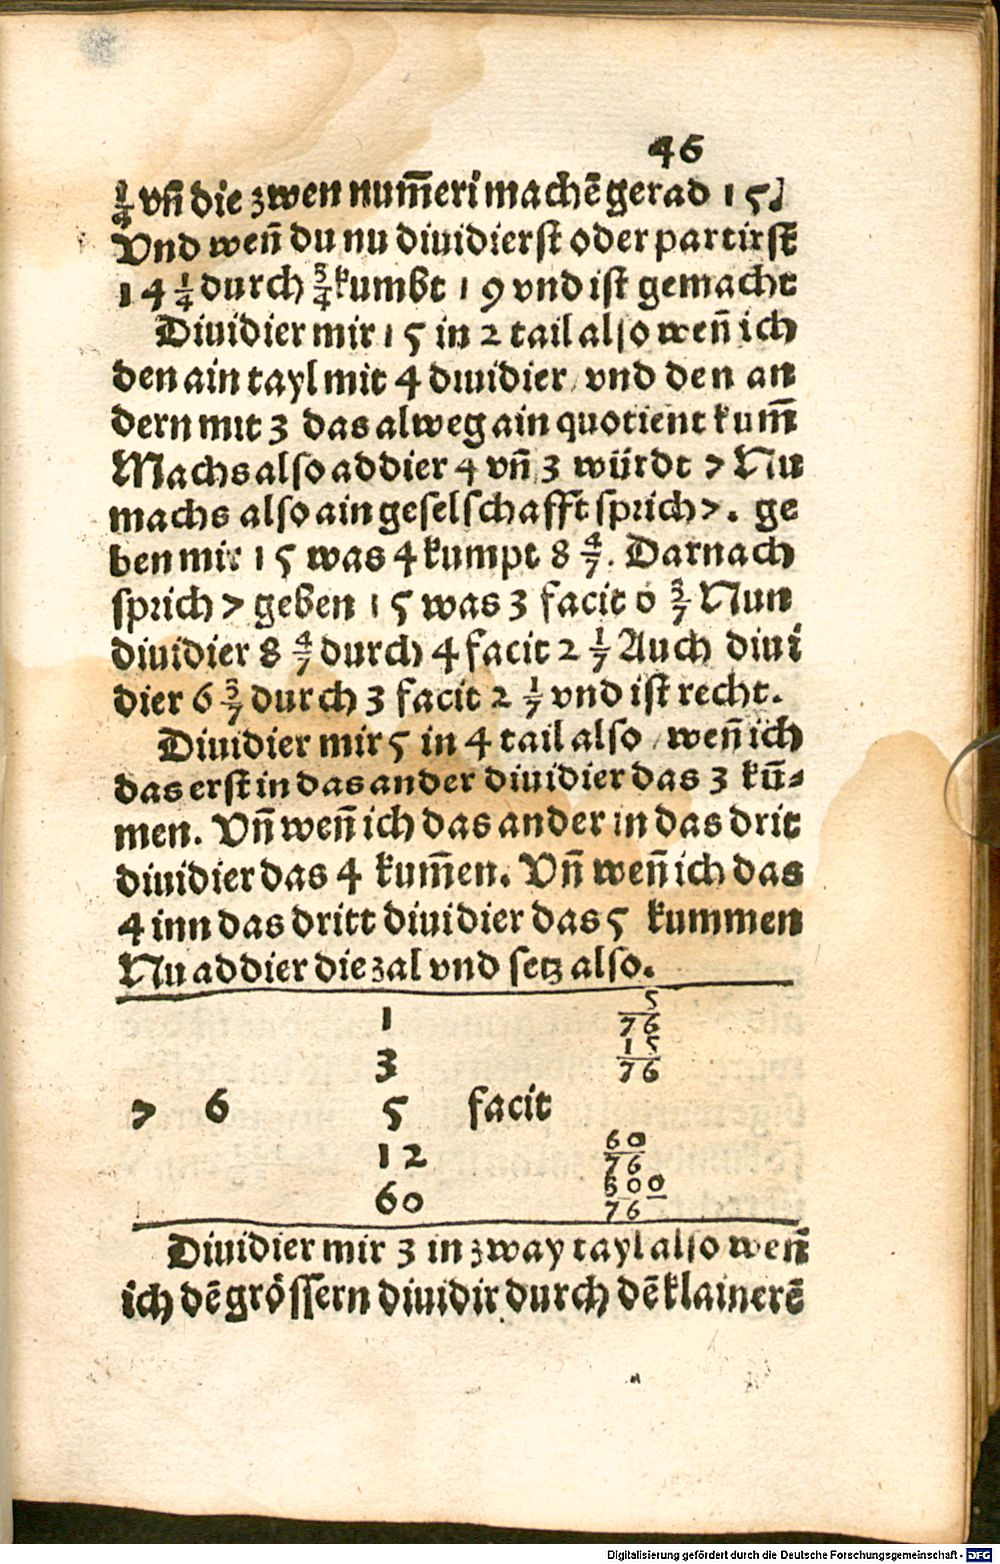 46
¼ vñ die zwen num̃eri machẽ gerad 15.
Vnd weñ du nu diuidierst oder partirst
14 ¼ durch ¾ kumbt 19 vnd ist gemacht
Diuidier mir 15 in 2 tail also weñ ich
den ain tayl mit 4 diuidier / vnd den an
dern mit 3 das alweg ain quotient kum̃
Machs also addier 4 vñ 3 würdt 7 Nu
machs also ain geselschafft sprich 7. ge
ben mir 15 was 4 kumpt 8 4/7. Darnach
sprich 7 geben 15 was 3 facit 6 3/7 Nun
diuidier 8 4/7 durch 4 facit 2 1/7 Auch diui
dier 6 3/7 durch 3 facit 2 1/7 vnd ist recht.
Diuidier mir 5 in 4 tail also / weñ ich
das erst in das ander diuidier das 3 kũ-
men. Vñ weñ ich das ander in das drit
diuidier das 4 kum̃en. Vñ weñ ich das
4 inn das dritt diuidier das 5 kummen
Nu addier die zal vnd setz also.
1 5/76
3 15/76
7 6 5 facit
12 60/76
60 300/76
Diuidier mir 3 in zway tayl also weñ
ich dẽ grössern diuidir durch dẽ klainerẽ
Digitalisierung gefördert durch die Deutsche Forschungsgemeinschaft - DFG